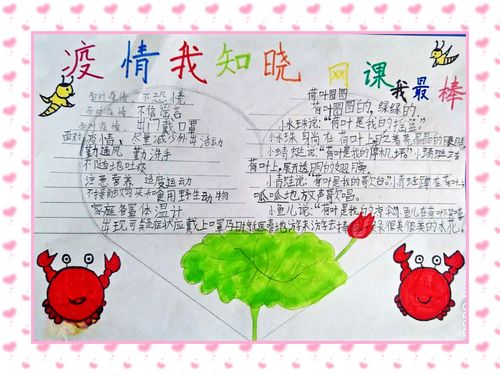 疫情我知晓 网课我最棒
面对疫情、不恐慌
面对疫情、不信谣言
面对疫情、出门戴口罩
面对疫情、尽量减少外出活动
勤通风 勤洗手
不随地吐痰
注意营养 适度运动
不接触购买和食用野生动物
家庭备置体温计
出现可疑症状应戴上口罩及时就医
荷叶圆圆
荷叶圆圆的，绿绿的。
小水珠说："荷叶是我的摇篮。"
小水珠躺在荷叶上，眨着亮晶晶的眼睛
小蜻蜓说："荷叶是我的停机坪。"小蜻蜓立在
荷叶上，展开透明的翅膀。
小青蛙说："荷叶是我的歌台。"小青蛙蹲在荷叶上
呱呱地放声歌唱。
小鱼儿说："荷叶是我的凉伞。"小鱼儿在荷叶下笑嘻嘻
地游来游去，捧起一朵朵很美很美的水花。